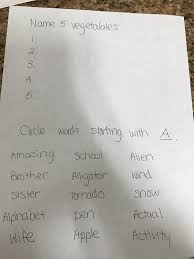 Name 5 vegetables
1.
2.
3.
4
5.
Circle words starting with A.
Amazing school Alien
Brother Alligator Wind
sister Tornado snow
Alphabet pen Actual
Wife Apple Activity